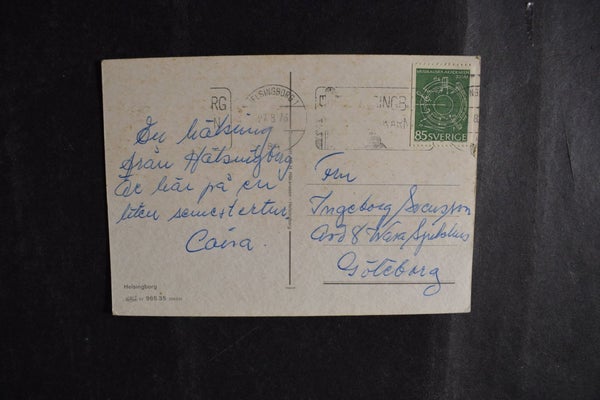 RG
N
HELSINGBORG 1
27.8.76
INGB
MUSIKALISKA AKADEMIEN
85 SVERIGE
En hälsning
från Hälsingborg
är här på en
liten semestertur
Caira.
Fru
Ingeborg Svensson
Avd 8 Wasa Sjukhus
Göteborg
Helsingborg
965.35